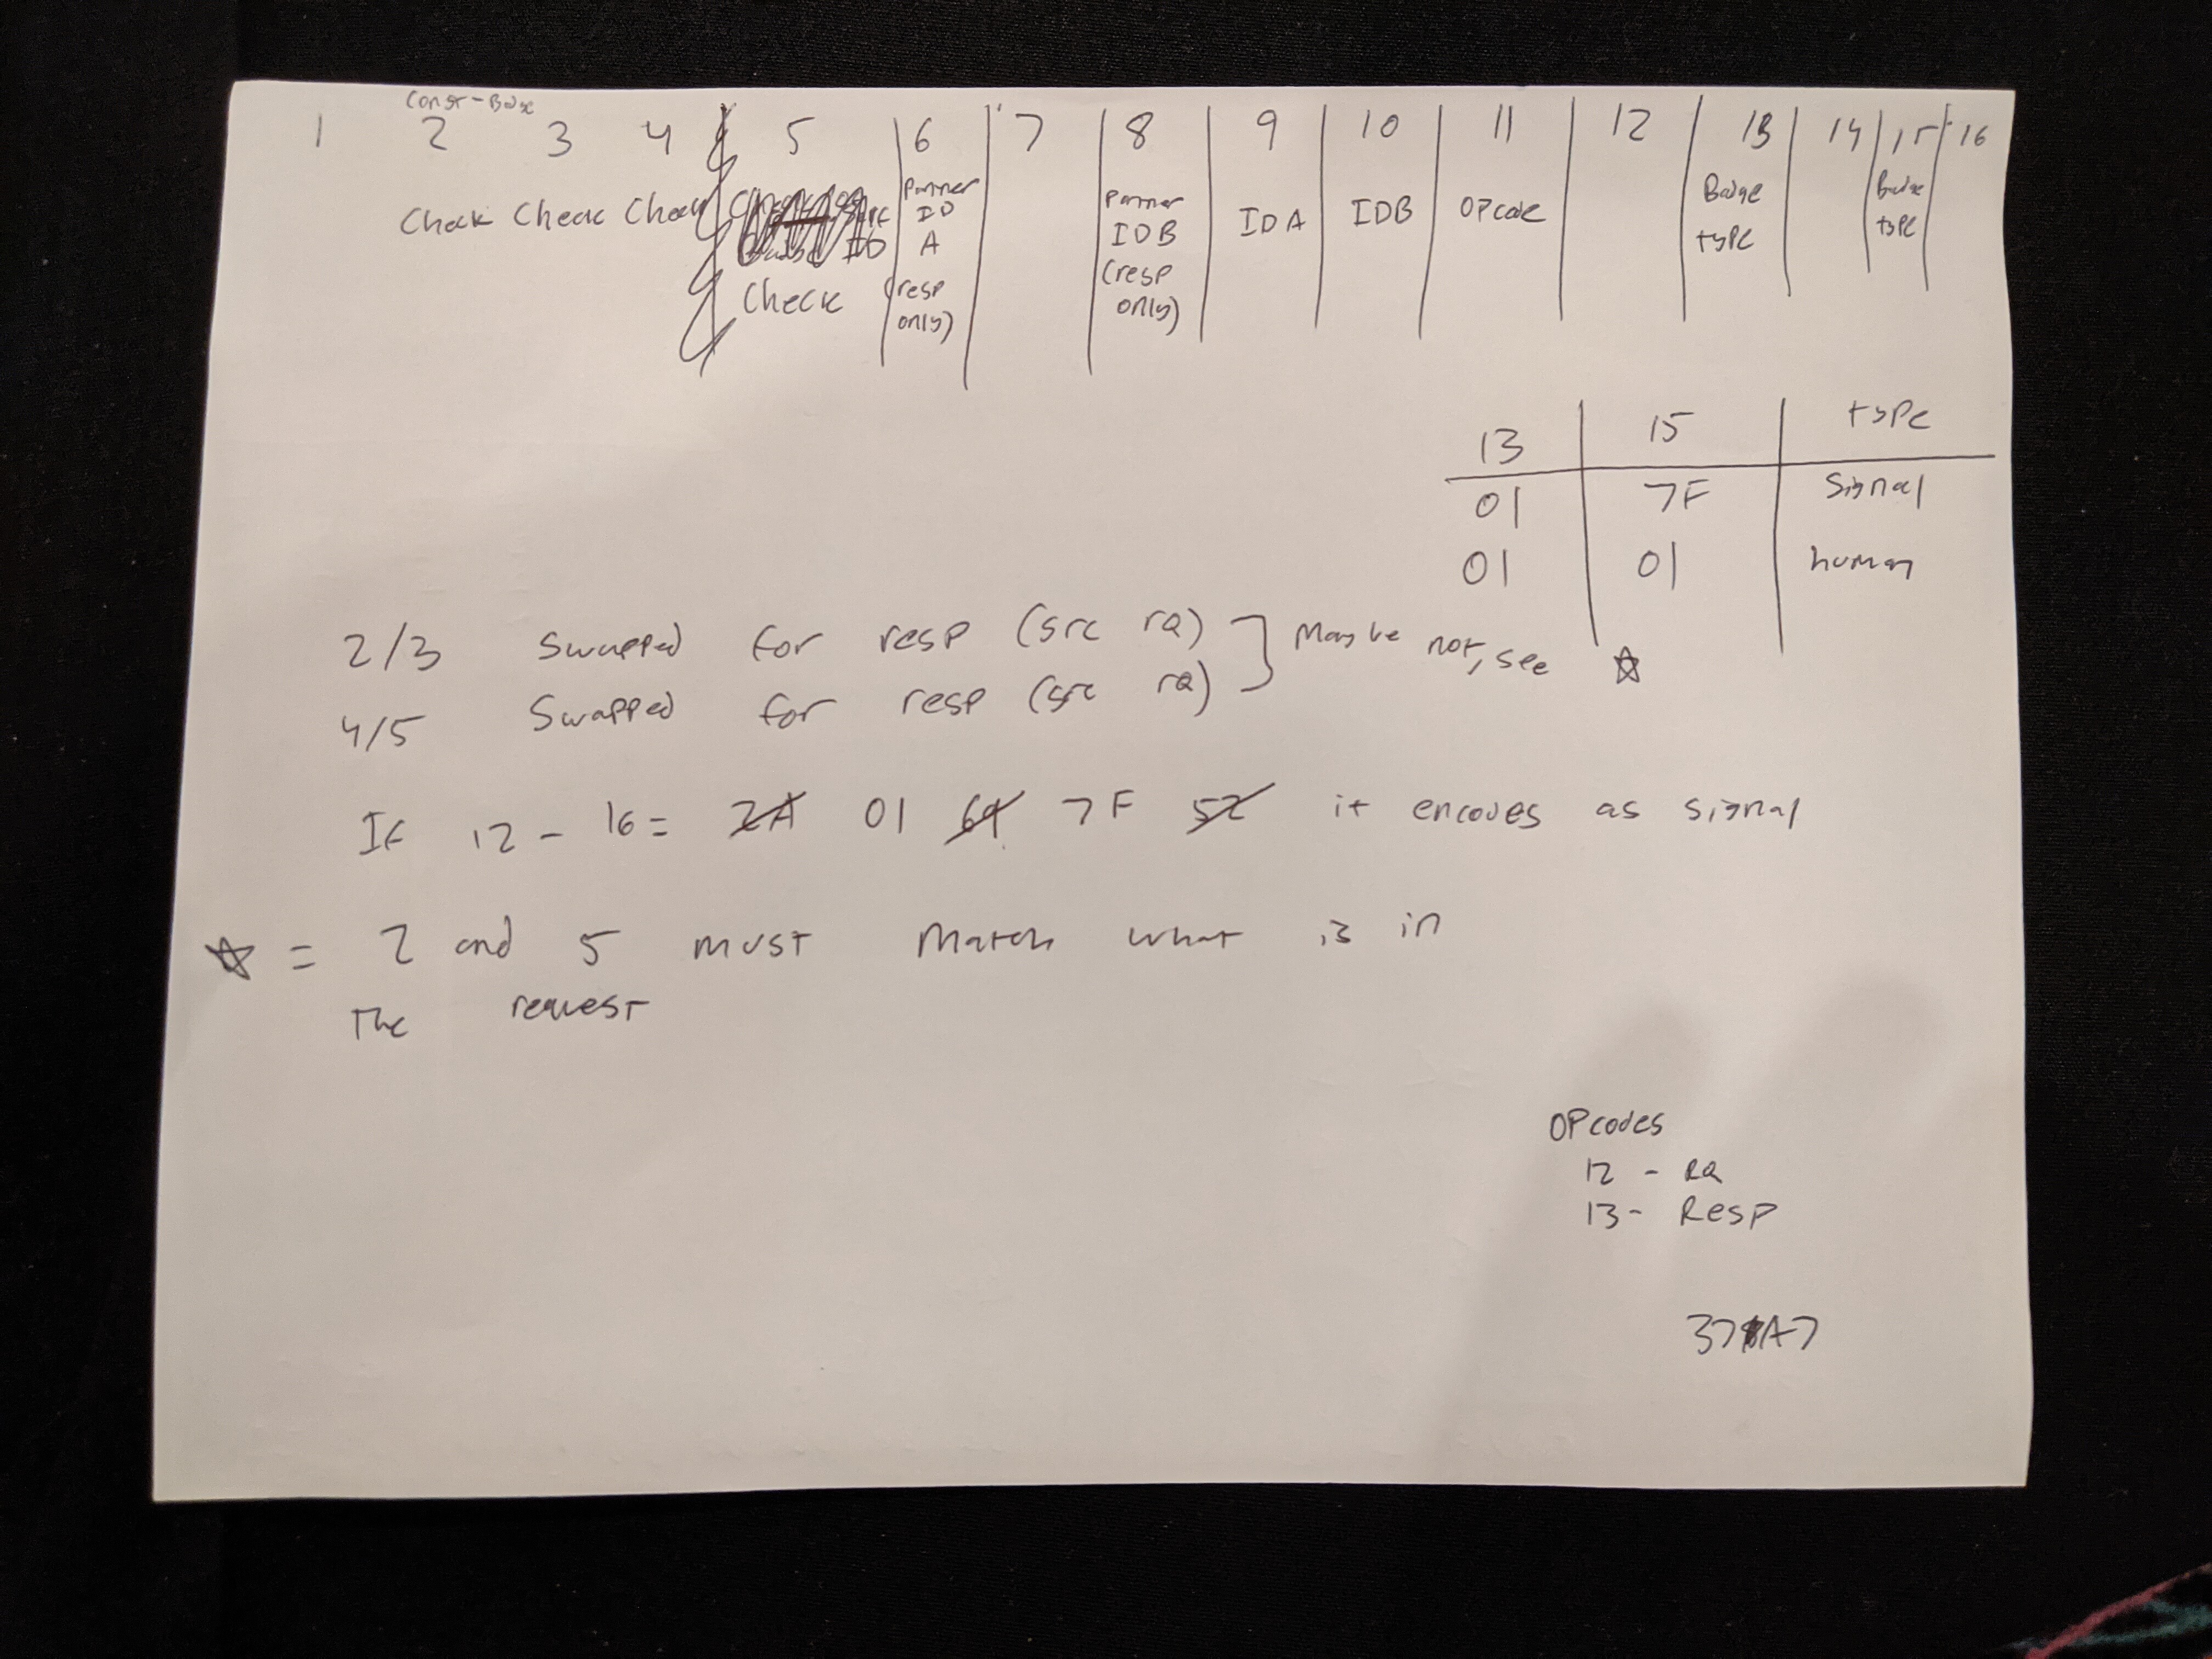 Const-Badge
1 2 3 4 5 6 7 8 9 10 11 12 13 14 15 16
Check Check Check
Check
Partner
ID
A
(resp
only)
Partner
IDB
(resp
only)
IDA
IDB
OPcode
Badge
type
Badge
type
13 15 type
01 7F Signal
01 01 human
2/3 Swapped for resp (src rq)
4/5 Swapped for resp (src rq)
Maybe not, see ☆
If 12-16= 2A 01 69 7F 52 it encodes as signal
☆ = 2 and 5 must match what is in
the request
OPcodes
12 - RQ
13 - Resp
37 A7